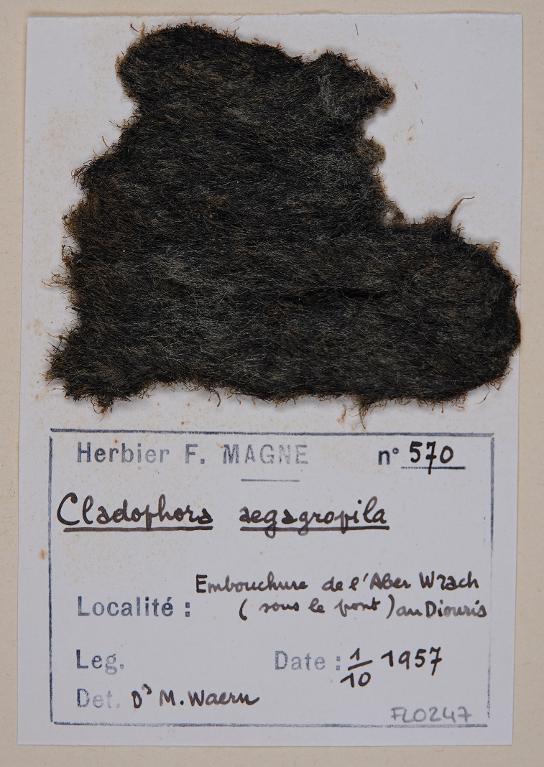 Herbier F. MAGNE n° 570
Cladophora aegagropila
Embouchure de l'Aber Wrach
Localité : (sous le pont) au Diouris
Leg. Date : 1/10 1957
Det. Dr M. Waern
FL0247